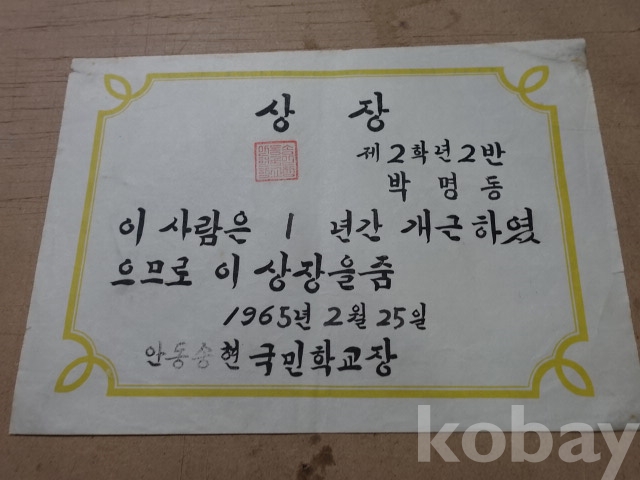 상 장
제2학년2반
박 명 동
이 사람은 1 년간 개근하였
으므로 이 상장을줌
1965년 2월 25일
안동송현국민학교장
kobay